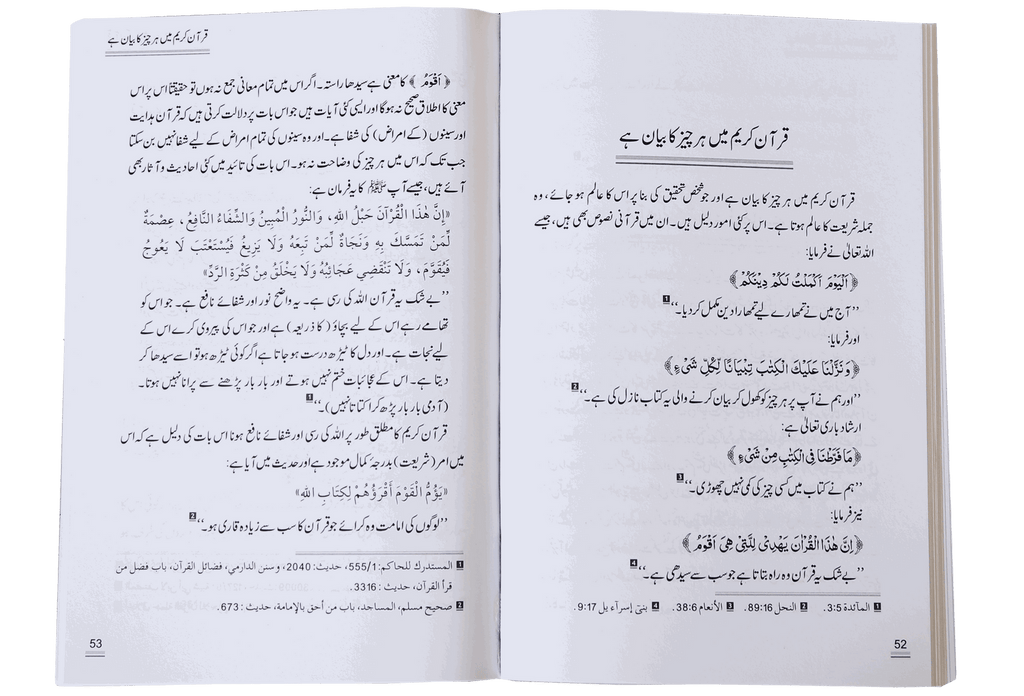 قرآن کریم میں ہر چیز کا بیان ہے
قرآن کریم میں ہر چیز کا بیان ہے اور جو شخص تحقیق کی بنا پر اس کا عالم ہو جائے، وہ
جملہ شریعت کا عالم ہوتا ہے۔ اس پر کئی امور دلیل ہیں۔ ان میں قرآنی نصوص بھی ہیں، جیسے
اللہ تعالیٰ نے فرمایا:
﴿اَلْیَوْمَ اَکْمَلْتُ لَکُمْ دِیْنَکُمْ﴾
’’آج میں نے تمھارے لیے تمھارا دین مکمل کر دیا۔‘‘ 1
اور فرمایا:
﴿وَنَزَّلْنَا عَلَیْكَ الْكِتٰبَ تِبْیَانًا لِّكُلِّ شَیْءٍ﴾
’’اور ہم نے آپ پر ہر چیز کو کھول کر بیان کرنے والی یہ کتاب نازل کی ہے۔‘‘ 2
ارشاد باری تعالیٰ ہے:
﴿مَا فَرَّطْنَا فِی الْكِتٰبِ مِنْ شَیْءٍ﴾
’’ہم نے کتاب میں کسی چیز کی کمی نہیں چھوڑی۔‘‘ 3
نیز فرمایا:
﴿اِنَّ هٰذَا الْقُرْاٰنَ یَهْدِیْ لِلَّتِیْ هِیَ اَقْوَمُ﴾
’’بے شک یہ قرآن وہ راہ بتاتا ہے جو سب سے سیدھی ہے۔‘‘ 4
1 المآئدة 3:5. 2 النحل 89:16 3 الأنعام 38:6 4 بنی إسرآء یل 9:17.
52
قرآن کریم میں ہر چیز کا بیان ہے
﴿اَقْوَمُ﴾ کا معنی ہے سیدھا راستہ۔ اگر اس میں تمام معانی جمع نہ ہوں تو حقیقتاً اس پر اس
معنی کا اطلاق صحیح نہ ہوگا اور ایسی کئی آیات ہیں جو اس بات پر دلالت کرتی ہیں کہ قرآن ہدایت
اور سینوں (کے امراض) کی شفا ہے۔ اور وہ سینوں کی تمام امراض کے لیے شفا نہیں بن سکتا
جب تک کہ اس میں ہر چیز کی وضاحت نہ ہو۔ اس بات کی تائید میں کئی احادیث و آثار بھی
آئے ہیں، جیسے آپ ﷺ کا یہ فرمان ہے:
«إِنَّ هٰذَا الْقُرْآنَ حَبْلُ اللهِ، وَالنُّورُ الْمُبِينُ وَالشِّفَاءُ النَّافِعُ، عِصْمَةٌ
لِّمَنْ تَمَسَّكَ بِهِ وَنَجَاةٌ لِّمَنْ تَبِعَهُ وَلَا يَزِيغُ فَيُسْتَعْتَبَ لَا يَعْوَجُّ
فَيُقَوَّمَ، وَلَا تَنْقَضِي عَجَائِبُهُ وَلَا يَخْلَقُ مِنْ كَثْرَةِ الرَّدِّ»
’’بے شک یہ قرآن اللہ کی رسی ہے۔ یہ واضح نور اور شفائے نافع ہے۔ جو اس کو
تھامے رہے اس کے لیے بچاؤ (کا ذریعہ) ہے اور جو اس کی پیروی کرے اس کے
لیے نجات ہے۔ اور دل کا ٹیڑھ درست ہو جاتا ہے اگر کوئی ٹیڑھ ہو تو اسے سیدھا کر
دیتا ہے۔ اس کے عجائبات ختم نہیں ہوتے اور بار بار پڑھنے سے پرانا نہیں ہوتا۔
(آدمی بار بار پڑھ کر اکتاتا نہیں)۔‘‘ 1
قرآن کریم کا مطلق طور پر اللہ کی رسی اور شفائے نافع ہونا اس بات کی دلیل ہے کہ اس
میں امر (شریعت) بدرجۂ کمال موجود ہے اور حدیث میں آیا ہے:
«يَؤُمُّ الْقَوْمَ أَقْرَؤُهُمْ لِكِتَابِ اللهِ»
’’لوگوں کی امامت وہ کرائے جو قرآن کا سب سے زیادہ قاری ہو۔‘‘ 2
1 المستدرك للحاكم: 555/1، حديث: 2040، و سنن الدارمي، فضائل القرآن، باب فضل من
قرأ القرآن، حديث: 3316.
2 صحيح مسلم، المساجد، باب من أحق بالإمامة، حديث: 673.
53